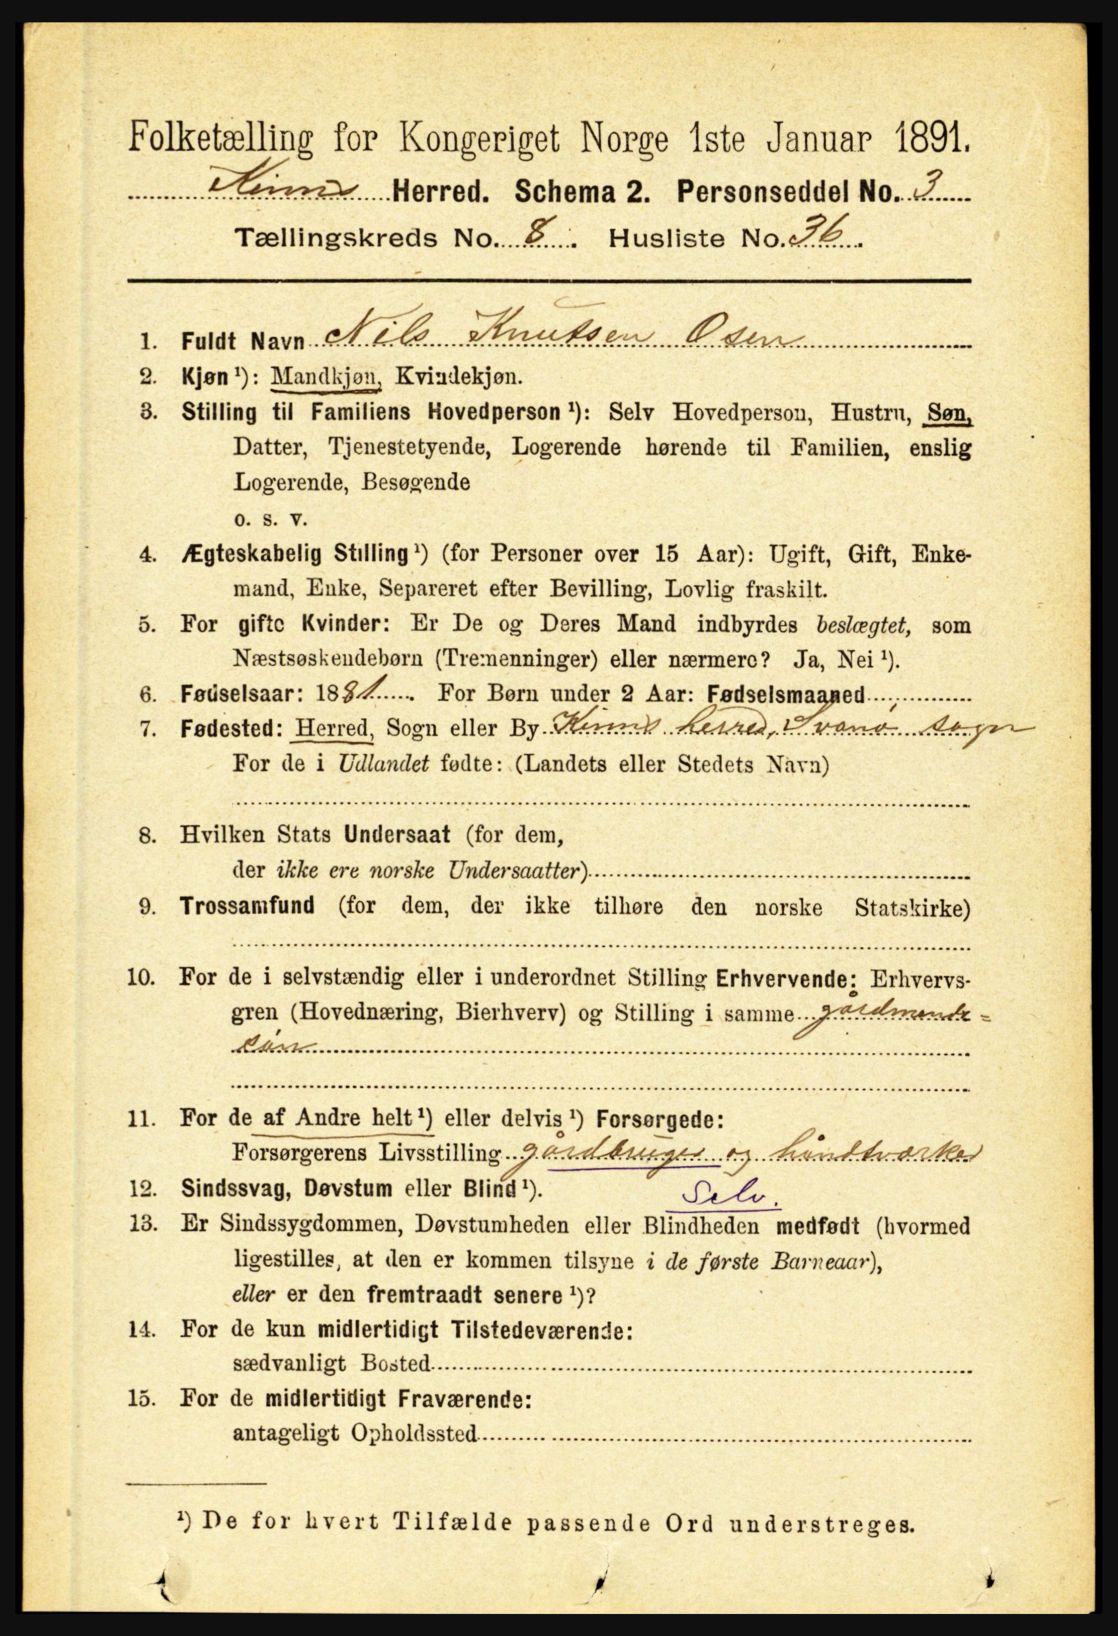 Folketælling for Kongeriget Norge 1ste Januar 1891.
Kinns Herred. Schema 2. Personseddel No. 3
Tællingskreds No. 8. Husliste No. 36.
1. Fuldt Navn Nils Knutsen Osen
2. Kjøn ¹): Mandkjøn, Kvindekjøn.
3. Stilling til Familiens Hovedperson ¹): Selv Hovedperson, Hustru, Søn,
Datter, Tjenestetyende, Logerende hørende til Familien, enslig
Logerende, Besøgende
o. s. v.
4. Ægteskabelig Stilling ¹) (for Personer over 15 Aar): Ugift, Gift, Enke-
mand, Enke, Separeret efter Bevilling, Lovlig fraskilt.
5. For gifte Kvinder: Er De og Deres Mand indbyrdes beslægtet, som
Næstsøskendebørn (Tremenninger) eller nærmere? Ja, Nei ¹).
6. Fødselsaar: 1881. For Børn under 2 Aar: Fødselsmaaned
7. Fødested: Herred, Sogn eller By Kinns herred, Svanø sogn
For de i Udlandet fødte: (Landets eller Stedets Navn)
8. Hvilken Stats Undersaat (for dem,
der ikke ere norske Undersaatter)
9. Trossamfund (for dem, der ikke tilhøre den norske Statskirke)
10. For de i selvstændig eller i underordnet Stilling Erhvervende: Erhvervs-
gren (Hovednæring, Bierhverv) og Stilling i samme gårdmands=
søn
11. For de af Andre helt ¹) eller delvis ¹) Forsørgede:
Forsørgerens Livsstilling gårdbruger og håndtværker
12. Sindssvag, Døvstum eller Blind ¹). Selv.
13. Er Sindssygdommen, Døvstumheden eller Blindheden medfødt (hvormed
ligestilles, at den er kommen tilsyne i de første Barneaar),
eller er den fremtraadt senere ¹)?
14. For de kun midlertidigt Tilstedeværende:
sædvanligt Bosted
15. For de midlertidigt Fraværende:
antageligt Opholdssted
¹) De for hvert Tilfælde passende Ord understreges.